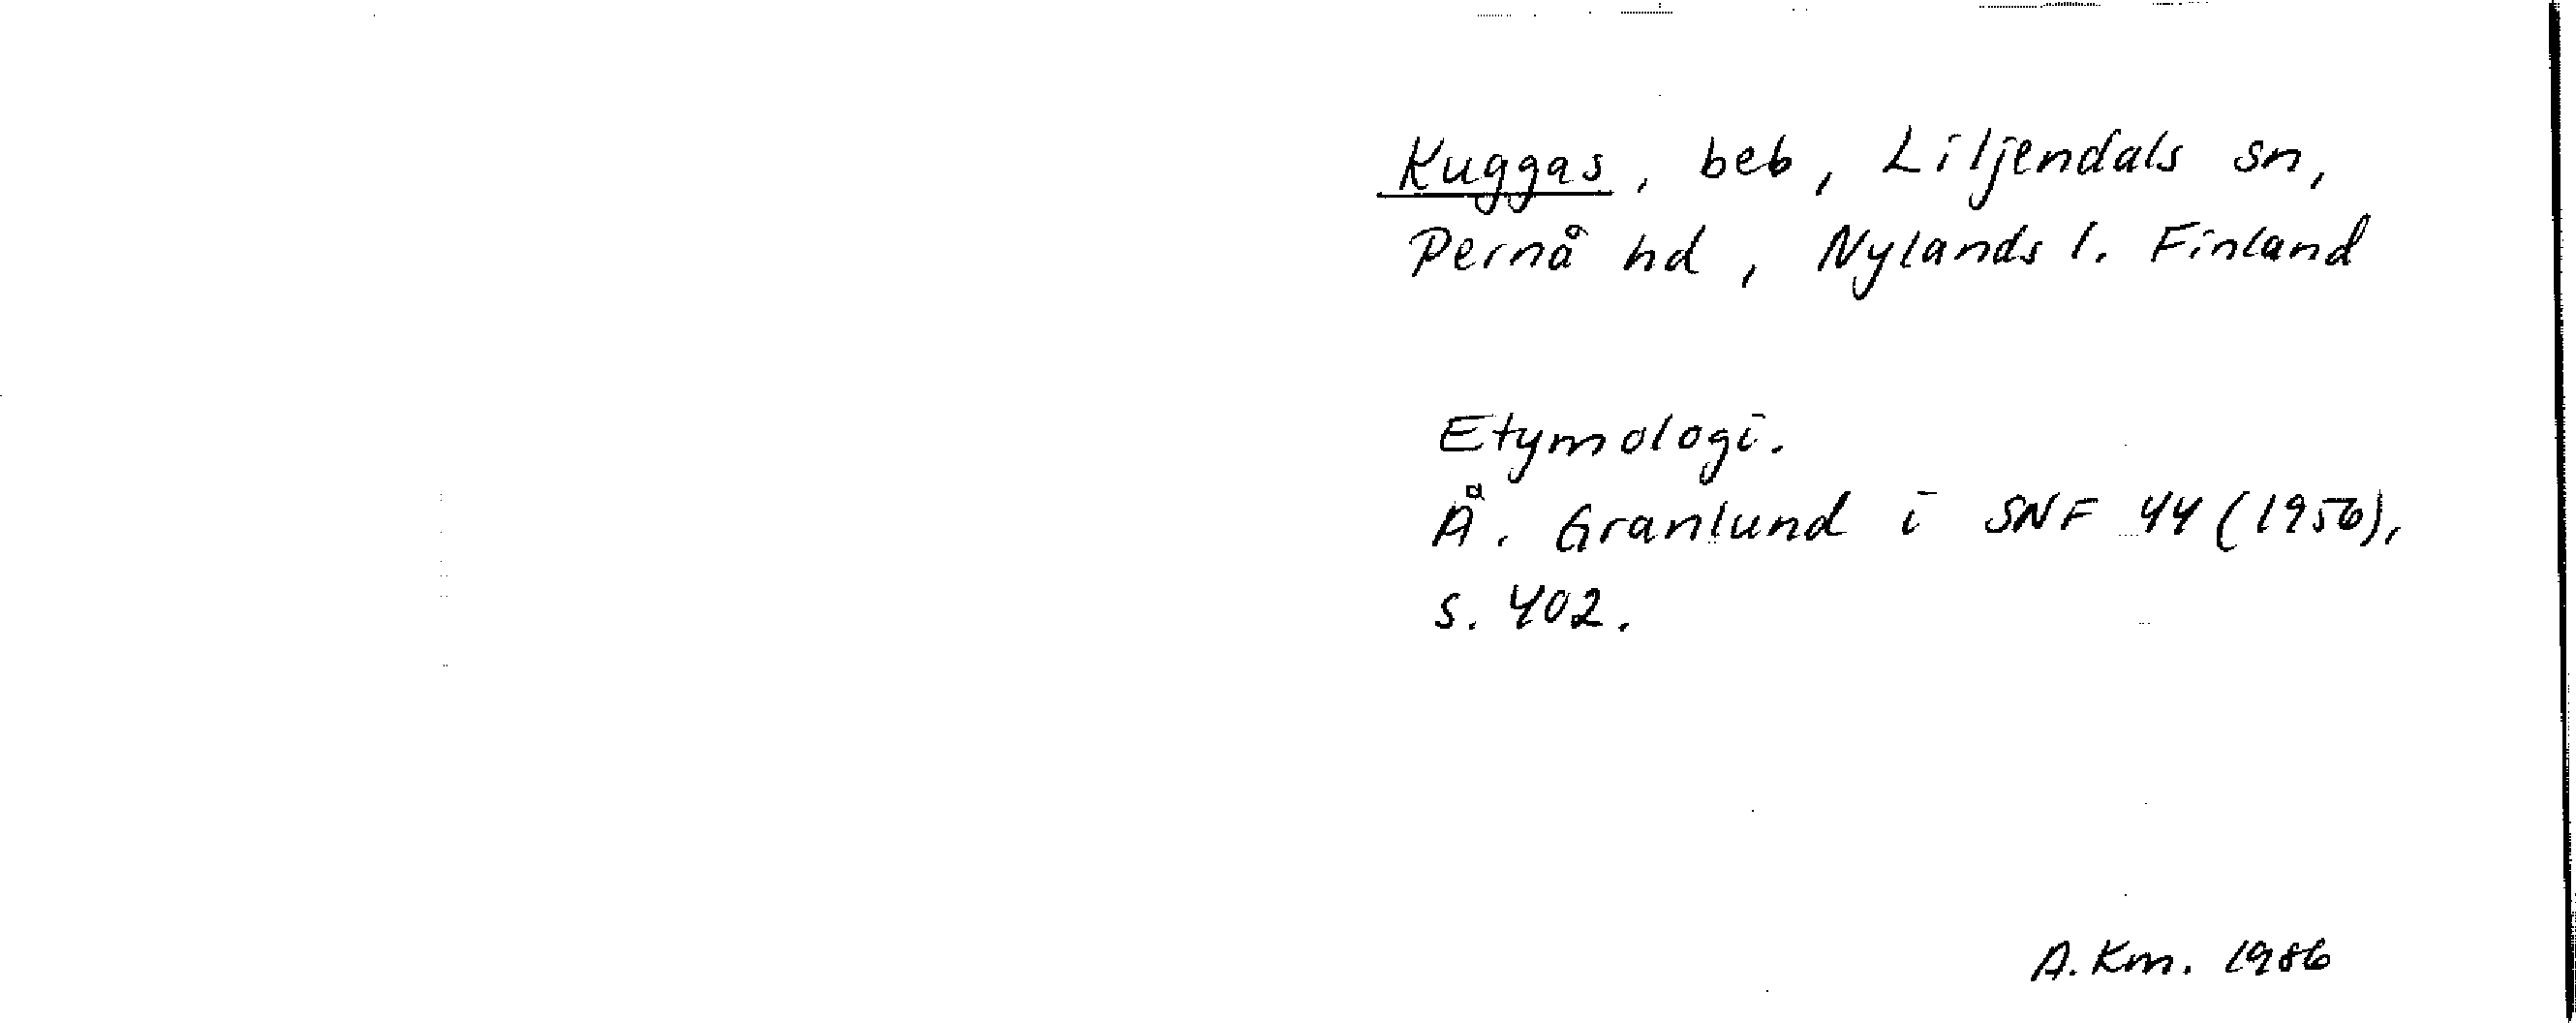 Kuggas, beb, Liljendals sn,
Pernå hd, Nylands l. Finland
Etymologi.
Å. Granlund i SNF 44 (1956),
s. 402.
A. Km. 1986